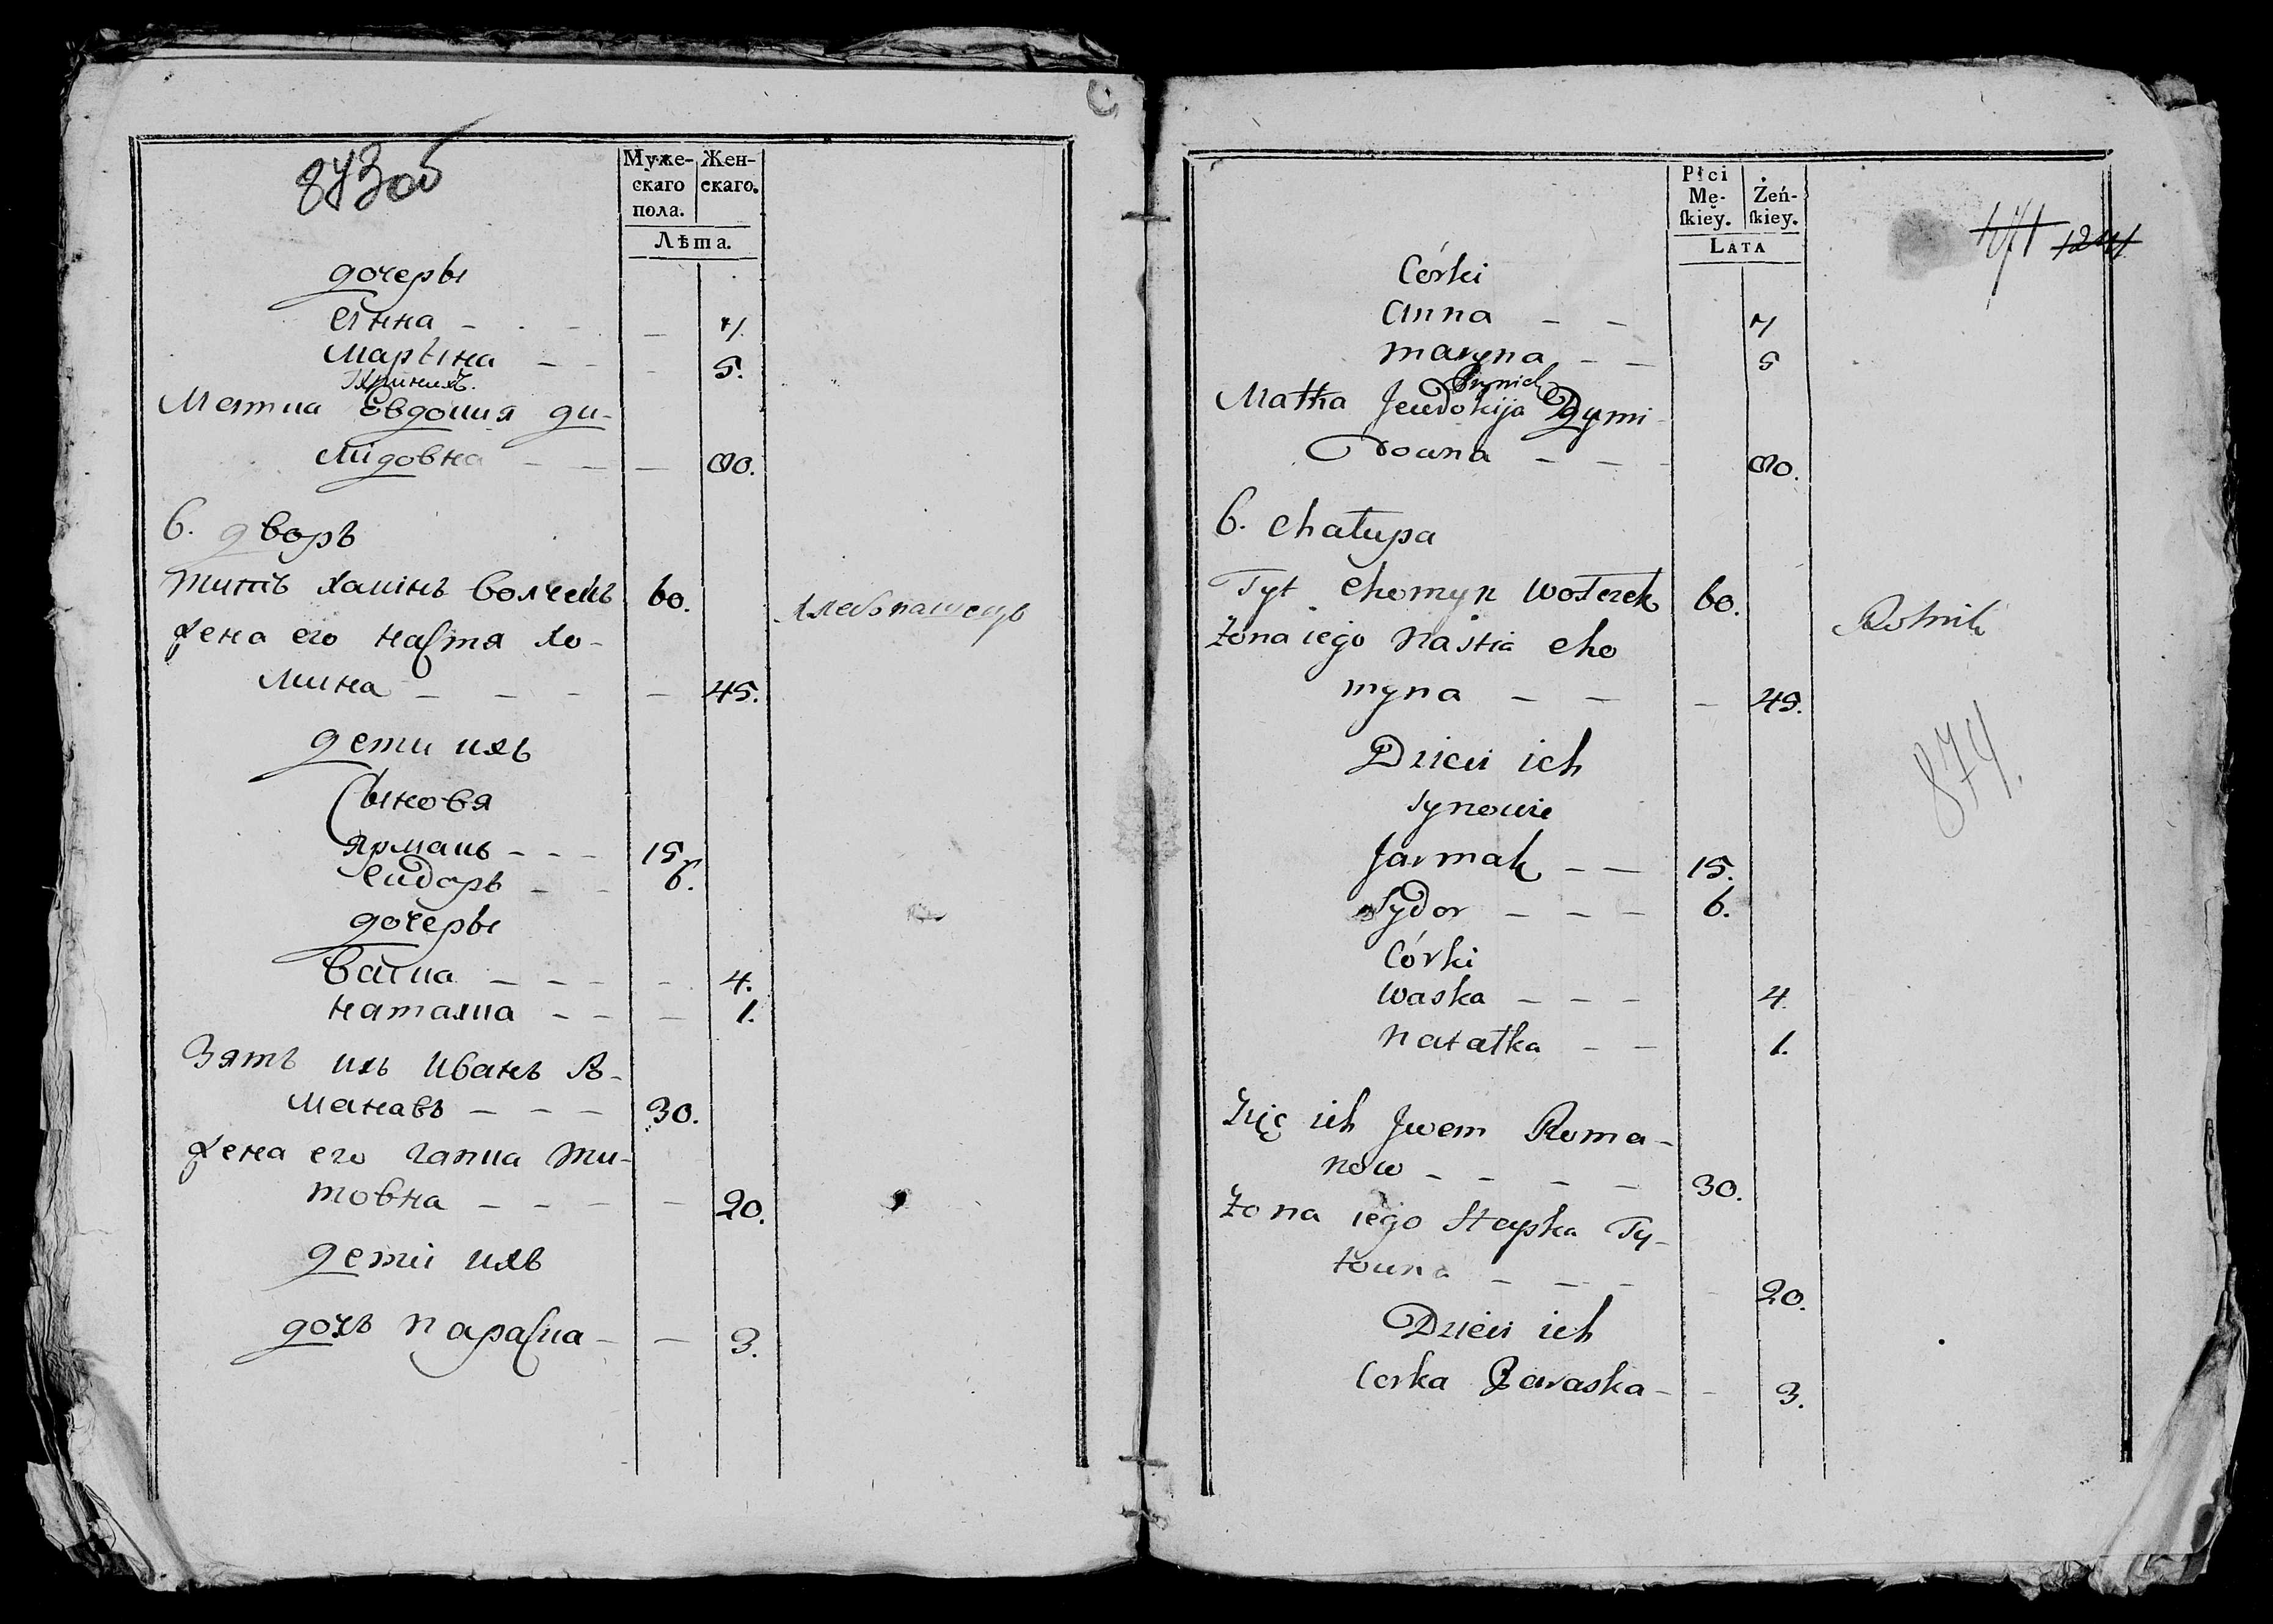 873об
Муже-
скаго
пола.
Жен-
скаго.
Лѣта.
дочеры
Анна - - - 7.
Марына - - 5.
Матка Евдокия ди-
мидовна - - - 80.
6. дворъ
Титъ Хамінъ Волчекъ 60. хлебопашецъ
жена его Настя Хо-
мина - - - - 45.
дети ихъ
Сыновя
Ярмакъ - - - 15.
Сидоръ - - 6.
дочеры
Васка - - - - 4.
Наталка - - - 1.
Зять ихъ Иванъ Ра-
манавъ - - - 30.
жена его Гапка Ти-
товна - - - - 20.
дети ихъ
дочъ Параска - - 3.
Płci
Mę-
skiéy.
Żeń-
skiey.
LATA
1241
Córki
Anna - - 7
Maryna - - 5
Matka Jewdokija Dymi-
downa - - - 80.
6. Chałupa
Tyt Chomyn Wołczek 60. Rolnik
Żona iego Nastia Cho
myna - - - 45.
874.
Dzieci ich
Synowie
Jarmak - - 15.
Sydor - - - 6.
Córki
Waska - - - 4.
Natałka - - 1.
Zięć ich Jwan Roma-
now - - - - 30.
Żona iego Hapka Ty-
towna - - - - 20.
Dzieci ich
Corka Paraska - - 3.